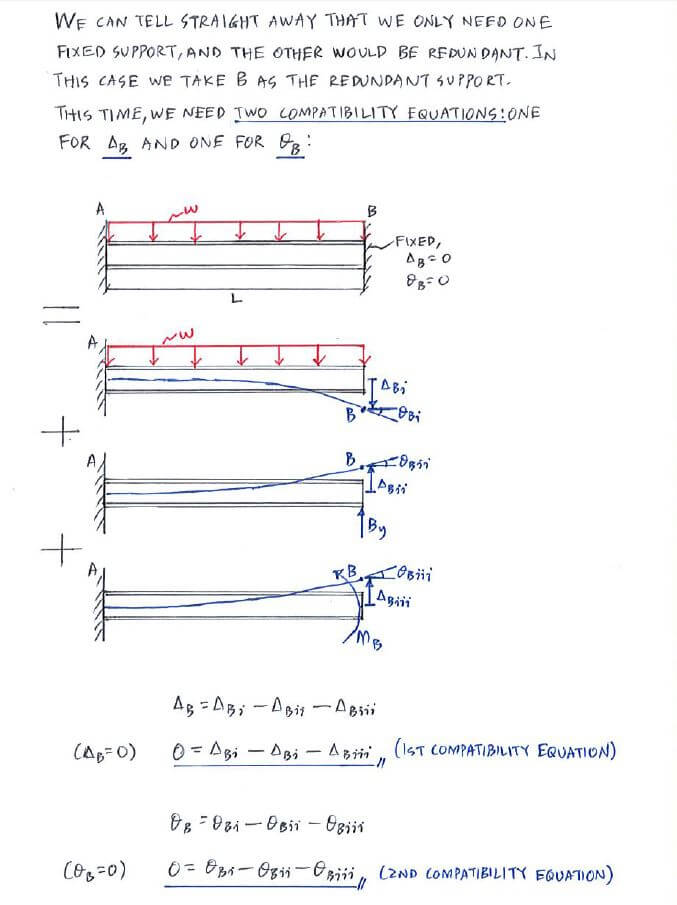 WE CAN TELL STRAIGHT AWAY THAT WE ONLY NEED ONE
FIXED SUPPORT, AND THE OTHER WOULD BE REDUNDANT. IN
THIS CASE WE TAKE B AS THE REDUNDANT SUPPORT.
THIS TIME, WE NEED TWO COMPATIBILITY EQUATIONS: ONE
FOR ΔB AND ONE FOR θB:
A
w
B
FIXED,
ΔB = 0
θB = 0
L
=
A
w
ΔBi
B
θBi
+
A
B
θBii
ΔBii
By
+
A
B
θBiii
ΔBiii
MB
ΔB = ΔBi - ΔBii - ΔBiii
(ΔB=0) 0 = ΔBi - ΔBi - ΔBiii // (1ST COMPATIBILITY EQUATION)
θB = θBi - θBii - θBiii
(θB=0) 0 = θBi - θBii - θBiii // (2ND COMPATIBILITY EQUATION)